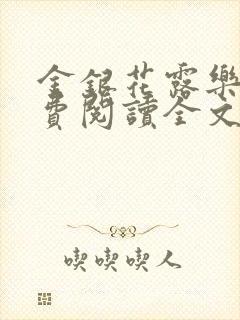 金銀花露樂
費閱讀全文
喫喫喫人